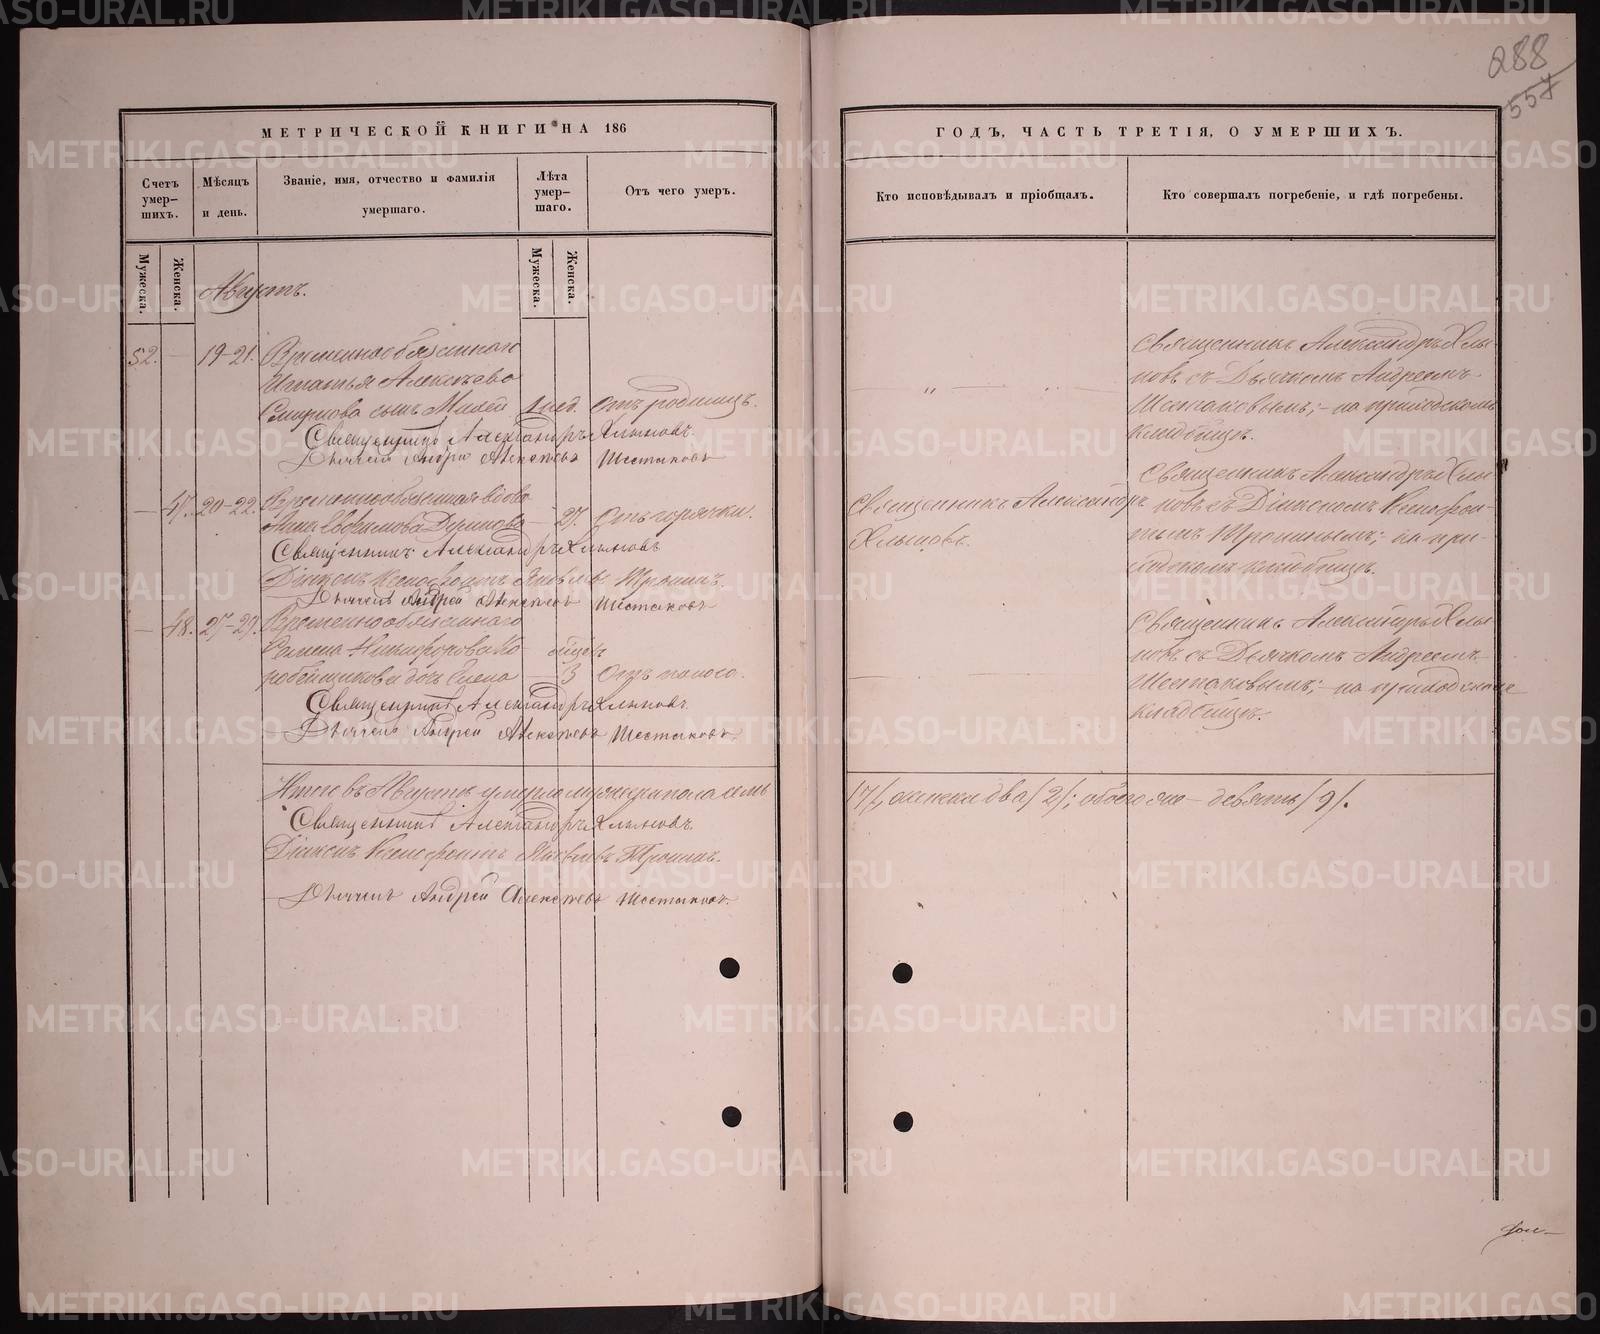 288
557
МЕТРИЧЕСКОЙ КНИГИ НА 186
ГОДЪ, ЧАСТЬ ТРЕТІЯ, О УМЕРШИХЪ.
Счетъ умер-шихъ.
Мѣсяцъ и день.
Званіе, имя, отчество и фамилія умершаго.
Лѣта умер-шаго.
Отъ чего умеръ.
Кто исповѣдывалъ и пріобщалъ.
Кто совершалъ погребеніе, и гдѣ погребены.
Мужеска.
Женска.
Мужеска.
Женска.
Августъ.
52. — 19-21. Временнообязаннаго
Игнатья Алексѣева
Смирнова сынъ 1 нед. Отъ родимцъ.
Священникъ Александръ Хлыновъ.
Дьячекъ Андрей Алексѣевъ Шестаковъ
Священникъ Александръ Хлы-
новъ съ Дьячкомъ Андреемъ
Шестаковымъ; – на приходскомъ
кладбищѣ.
— 47. 20-22. Временнообязанная вдова
Анна Евфимова — 27. Отъ горячки.
Священникъ Александръ Хлыновъ
Діаконъ Ксенофонтъ Яковлевъ Тронинъ.
Дьячекъ Андрей Алексѣевъ Шестаковъ
Священникъ Александръ
Хлыновъ.
Священникъ Александръ Хлы-
новъ съ Діакономъ Ксенофон-
томъ Тронинымъ; на при-
ходскомъ кладбищѣ.
— 48. 27-29. Временнообязаннаго
Семена Никифорова Ко-
робейщикова дочь Елена 3 Отъ поноса.
Священникъ Александръ Хлыновъ.
Дьячекъ Андрей Алексѣевъ Шестаковъ.
Священникъ Александръ Хлы-
новъ съ Дьячкомъ Андреемъ
Шестаковымъ; – на приходскомъ
кладбищѣ.
Итого въ Августѣ умерло мужеска пола семь /7/, женска два /2/; обоего же – девять /9/.
Священникъ Александръ Хлыновъ.
Діаконъ Ксенофонтъ Яковлевъ Тронинъ.
Дьячекъ Андрей Алексѣевъ Шестаковъ.
METRIKI.GASO-URAL.RU